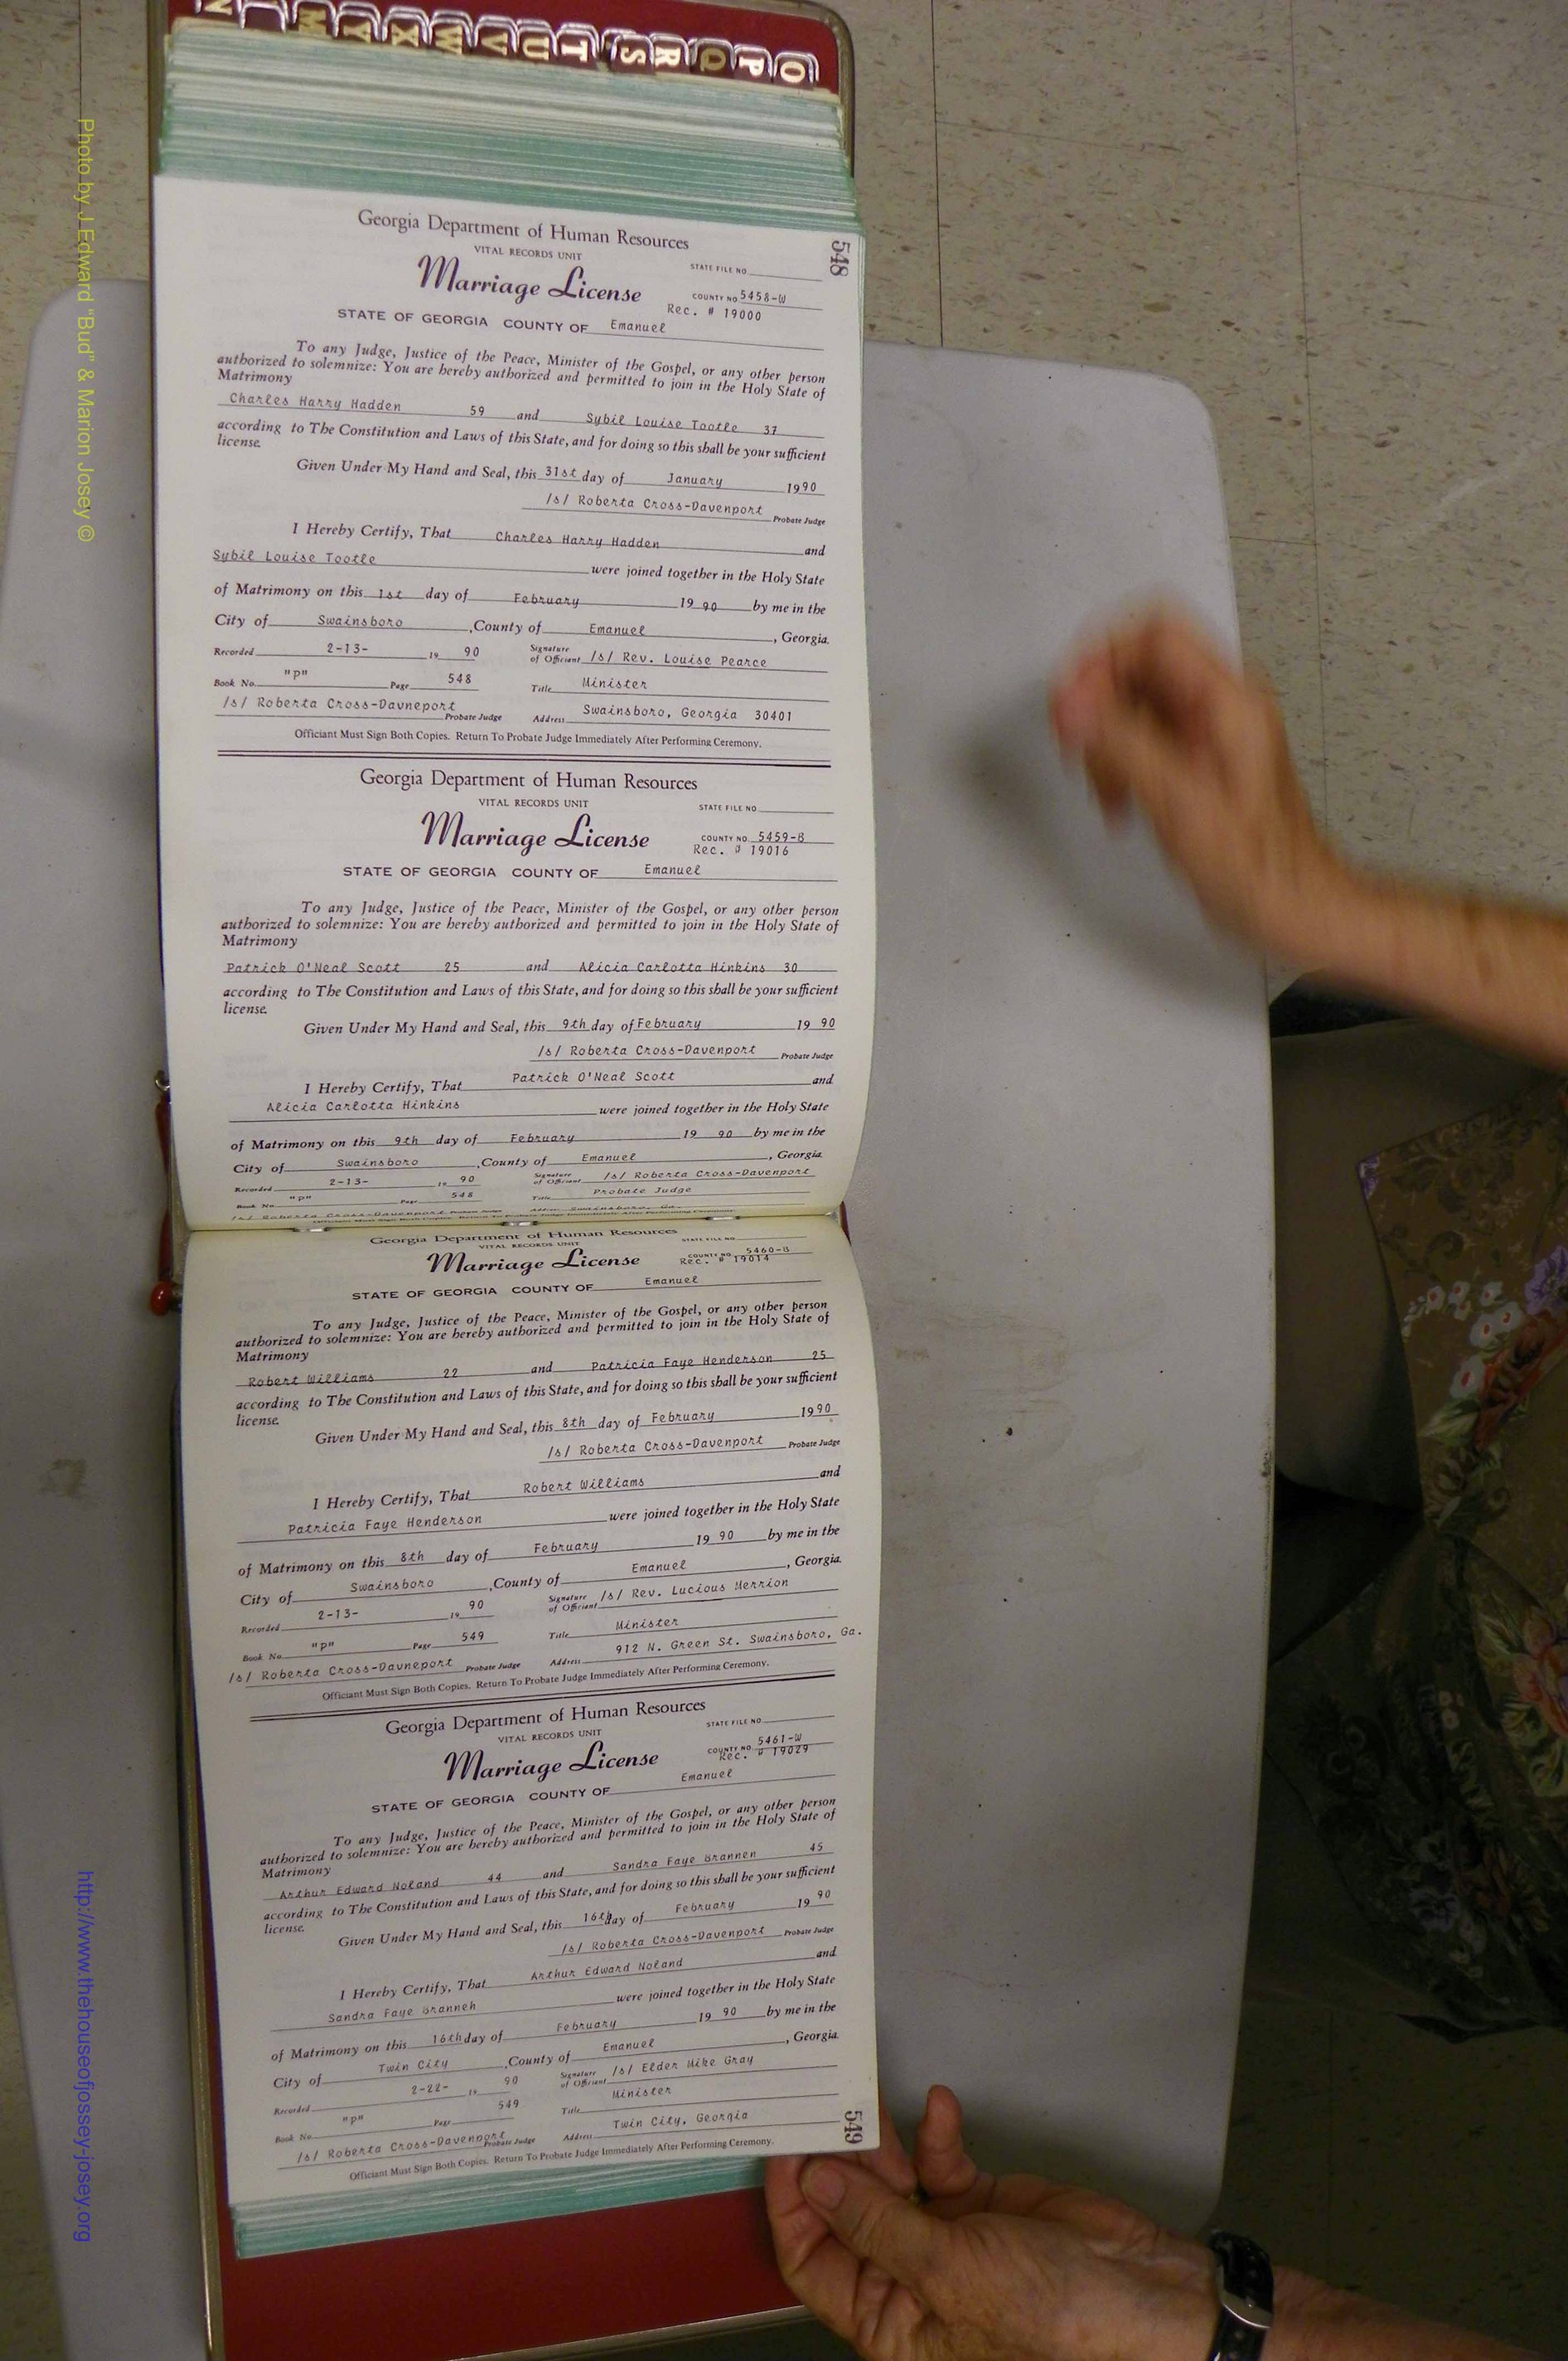 N M Y X W V U T S R Q P O
548
Georgia Department of Human Resources
VITAL RECORDS UNIT
STATE FILE NO.
Marriage License
COUNTY NO. 5458-W
Rec. # 19000
STATE OF GEORGIA COUNTY OF Emanuel
To any Judge, Justice of the Peace, Minister of the Gospel, or any other person
authorized to solemnize: You are hereby authorized and permitted to join in the Holy State of
Matrimony
Charles Harry Hadden 59 and Sybil Louise Tootle 37
according to The Constitution and Laws of this State, and for doing so this shall be your sufficient
license.
Given Under My Hand and Seal, this 31st day of January 1990
/s/ Roberta Cross-Davenport
Probate Judge
I Hereby Certify, That Charles Harry Hadden and
Sybil Louise Tootle were joined together in the Holy State
of Matrimony on this 1st day of February 19 90 by me in the
City of Swainsboro, County of Emanuel, Georgia.
Recorded 2-13- 19 90 Signature of Officiant /s/ Rev. Louise Pearce
Book No. "p" Page 548 Title Minister
/s/ Roberta Cross-Davneport Probate Judge Address Swainsboro, Georgia 30401
Officiant Must Sign Both Copies. Return To Probate Judge Immediately After Performing Ceremony.
Georgia Department of Human Resources
VITAL RECORDS UNIT
STATE FILE NO.
Marriage License
COUNTY NO. 5459-B
Rec. # 19016
STATE OF GEORGIA COUNTY OF Emanuel
To any Judge, Justice of the Peace, Minister of the Gospel, or any other person
authorized to solemnize: You are hereby authorized and permitted to join in the Holy State of
Matrimony
Patrick O'Neal Scott 25 and Alicia Carlotta Hinkins 30
according to The Constitution and Laws of this State, and for doing so this shall be your sufficient
license.
Given Under My Hand and Seal, this 9th day of February 19 90
/s/ Roberta Cross-Davenport Probate Judge
I Hereby Certify, That Patrick O'Neal Scott and
Alicia Carlotta Hinkins were joined together in the Holy State
of Matrimony on this 9th day of February 19 90 by me in the
City of Swainsboro, County of Emanuel, Georgia.
Recorded 2-13- 19 90 Signature of Officiant /s/ Roberta Cross-Davenport
Book No. "p" Page 548 Title Probate Judge
/s/ Roberta Cross-Davenport Probate Judge Address Swainsboro, Ga.
Officiant Must Sign Both Copies. Return To Probate Judge Immediately After Performing Ceremony.
Georgia Department of Human Resources
VITAL RECORDS UNIT
STATE FILE NO.
Marriage License
COUNTY NO. 5460-B
Rec. # 19014
STATE OF GEORGIA COUNTY OF Emanuel
To any Judge, Justice of the Peace, Minister of the Gospel, or any other person
authorized to solemnize: You are hereby authorized and permitted to join in the Holy State of
Matrimony
Robert Williams 22 and Patricia Faye Henderson 25
according to The Constitution and Laws of this State, and for doing so this shall be your sufficient
license.
Given Under My Hand and Seal, this 8th day of February 1990
/s/ Roberta Cross-Davenport Probate Judge
I Hereby Certify, That Robert Williams and
Patricia Faye Henderson were joined together in the Holy State
of Matrimony on this 8th day of February 19 90 by me in the
City of Swainsboro, County of Emanuel, Georgia.
Recorded 2-13- 19 90 Signature of Officiant /s/ Rev. Lucious Merrion
Book No. "p" Page 549 Title Minister
/s/ Roberta Cross-Davneport Probate Judge Address 912 N. Green St. Swainsboro, Ga.
Officiant Must Sign Both Copies. Return To Probate Judge Immediately After Performing Ceremony.
Georgia Department of Human Resources
VITAL RECORDS UNIT
STATE FILE NO.
Marriage License
COUNTY NO. 5461-W
Rec. # 19029
STATE OF GEORGIA COUNTY OF Emanuel
To any Judge, Justice of the Peace, Minister of the Gospel, or any other person
authorized to solemnize: You are hereby authorized and permitted to join in the Holy State of
Matrimony
Arthur Edward Noland 44 and Sandra Faye Brannen 45
according to The Constitution and Laws of this State, and for doing so this shall be your sufficient
license.
Given Under My Hand and Seal, this 16th day of February 19 90
/s/ Roberta Cross-Davenport Probate Judge
I Hereby Certify, That Arthur Edward Noland and
Sandra Faye Branneh were joined together in the Holy State
of Matrimony on this 16th day of February 19 90 by me in the
City of Twin City, County of Emanuel, Georgia.
Recorded 2-22- 19 90 Signature of Officiant /s/ Elder Mike Gray
Book No. "p" Page 549 Title Minister
/s/ Roberta Cross-Davenport Probate Judge Address Twin City, Georgia
Officiant Must Sign Both Copies. Return To Probate Judge Immediately After Performing Ceremony.
549
Photo by J Edward "Bud" & Marion Josey ©
http://www.thehouseofjossey-josey.org